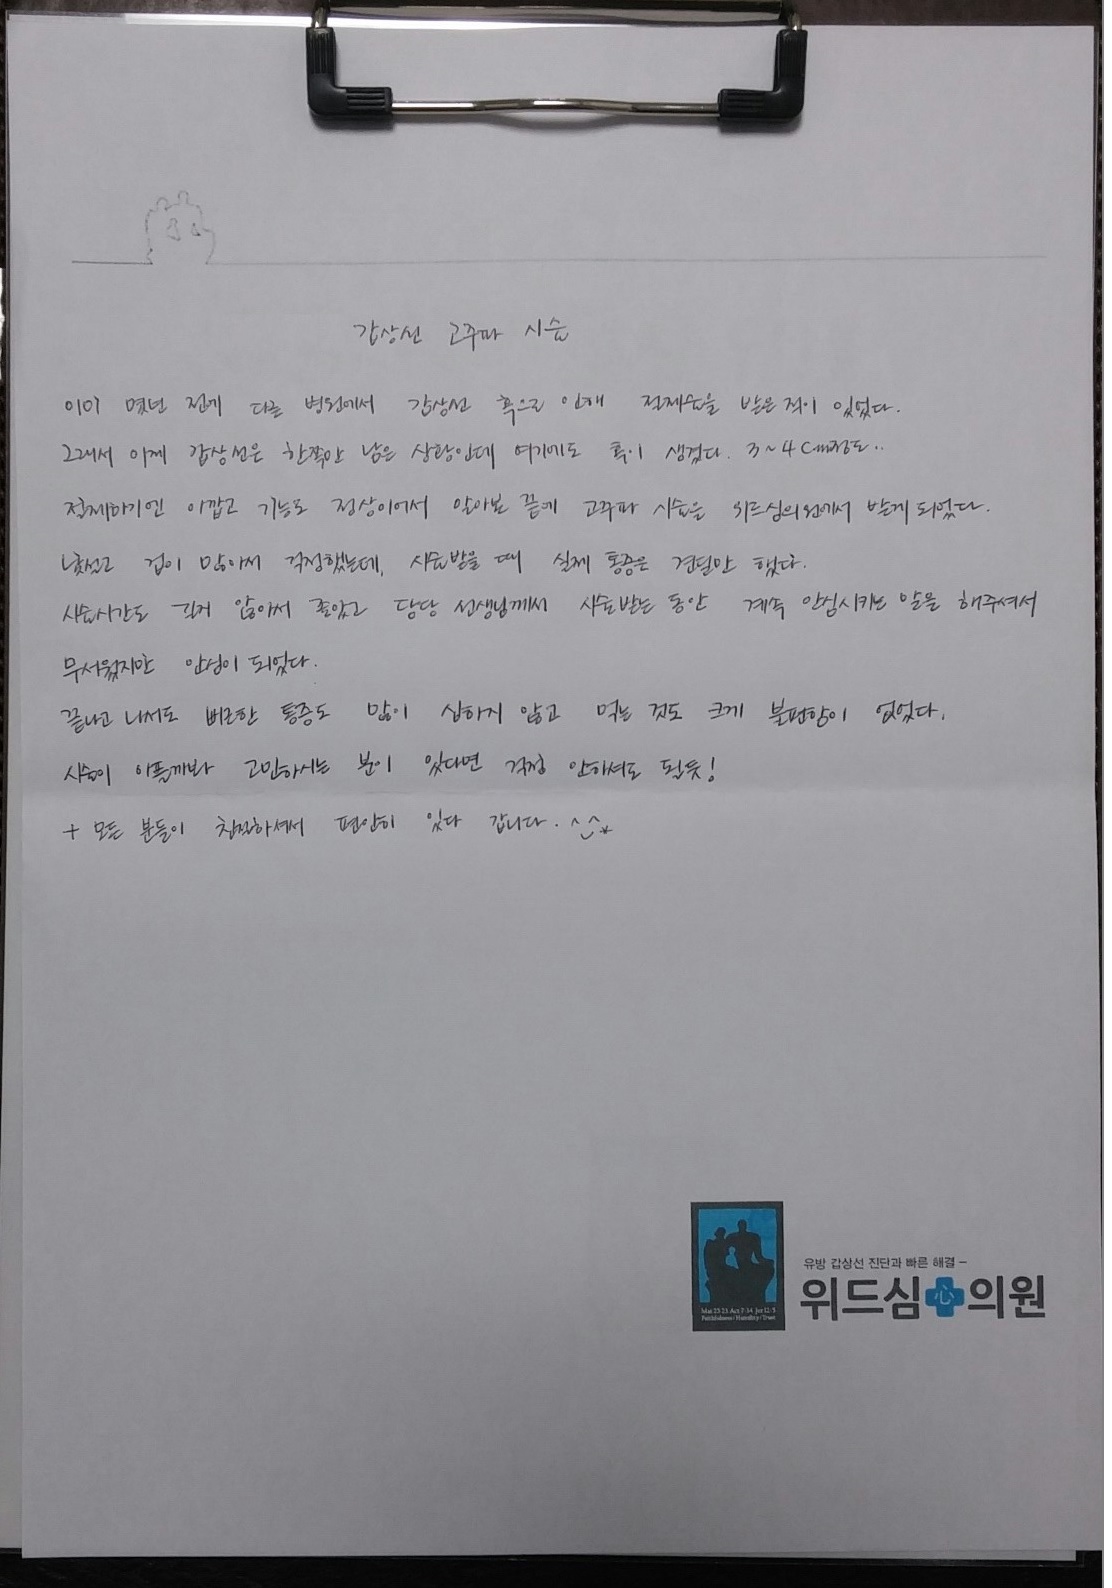 갑상선 고주파 시술
이미 몇년 전에 다른 병원에서 갑상선 혹으로 인해 절제술을 받은 적이 있었다.
그래서 이제 갑상선은 한쪽만 남은 상황인데 여기에도 혹이 생겼다. 3~4cm정도..
절제하기엔 아깝고 기능도 정상이어서 알아본 끝에 고주파 시술을 위드심의원에서 받게 되었다.
낯설고 겁이 많아서 걱정했는데, 시술받을 때 실제 통증은 견딜만 했다.
시술시간도 길지 않아서 좋았고 담당 선생님께서 시술받는 동안 계속 안심시키는 말을 해주셔서
무서웠지만 안심이 되었다.
끝나고 나서도 뻐근한 통증도 많이 심하지 않고 먹는 것도 크게 불편함이 없었다.
시술이 아플까봐 고민하시는 분이 있다면 걱정 안하셔도 될듯!
+ 모든 분들이 친절하셔서 편안히 있다 갑니다. ^^*
유방 갑상선 진단과 빠른 해결-
위드심心의원
Mat 23:23 Act 7:14 Jer 12:5
Faithfulness / Humility / Trust